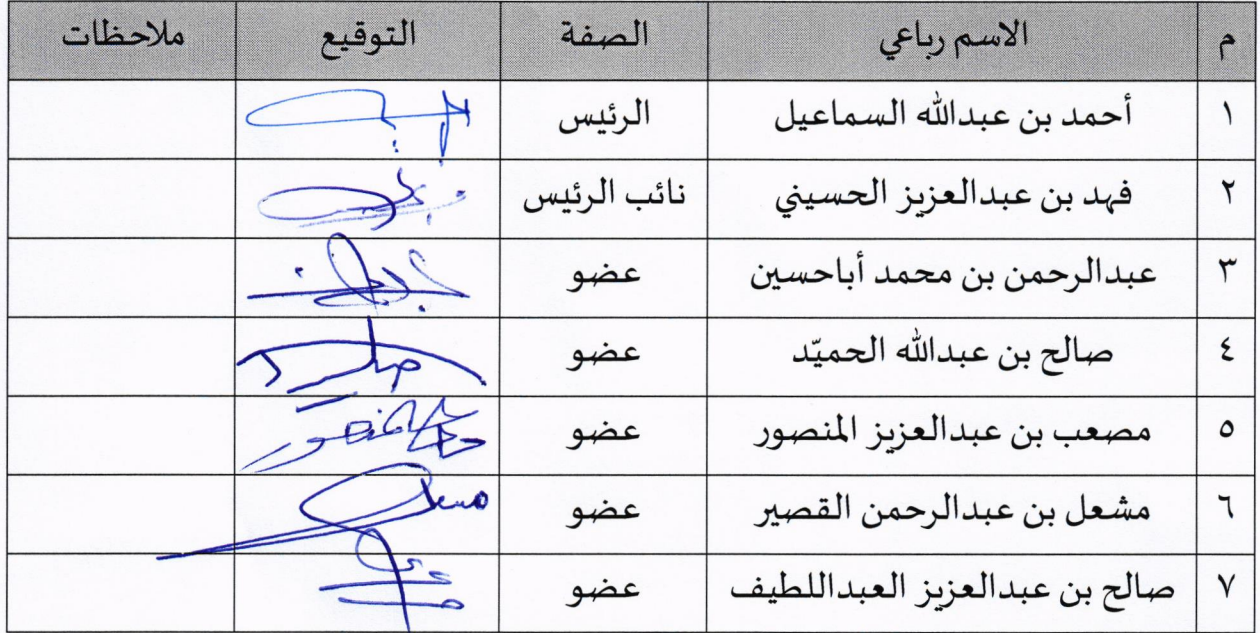 م الاسم رباعي الصفة التوقيع ملاحظات
١ أحمد بن عبدالله السماعيل الرئيس
٢ فهد بن عبدالعزيز الحسيني نائب الرئيس
٣ عبدالرحمن بن محمد أباحسين عضو
٤ صالح بن عبدالله الحميّد عضو
٥ مصعب بن عبدالعزيز المنصور عضو
٦ مشعل بن عبدالرحمن القصير عضو
٧ صالح بن عبدالعزيز العبداللطيف عضو